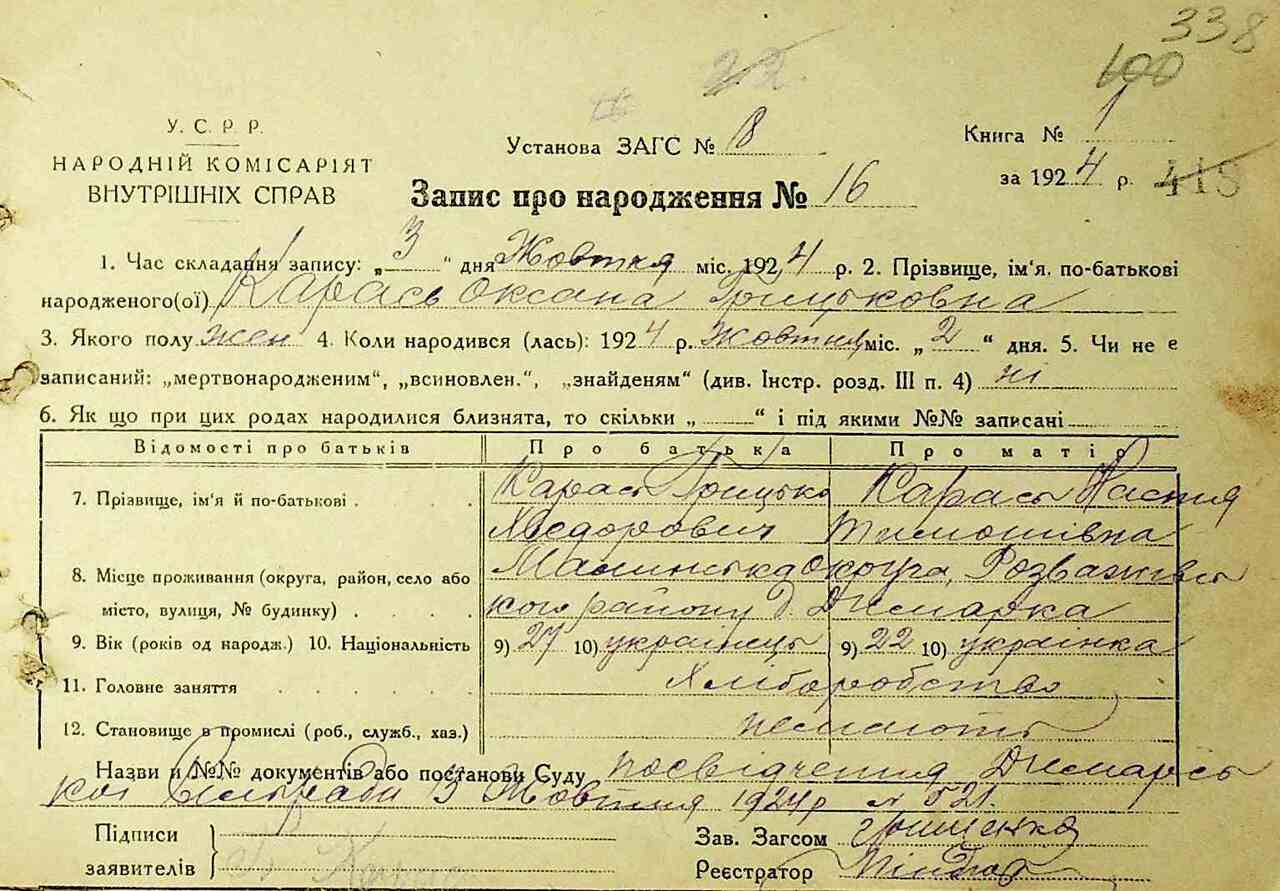 338
100
22.
У. С. Р. Р.
НАРОДНІЙ КОМІСАРІЯТ
ВНУТРІШНІХ СПРАВ
Установа ЗАГС № 8
Книга № 1
за 1924 р. 418
Запис про народження № 16
1. Час складання запису: „3" дня Жовтня міс. 1924 р. 2. Прізвище, ім'я, по-батькові
народженого(ої) Карась Оксана Грицьковна
3. Якого полу жен 4. Коли народився (лась): 1924 р. Жовтня міс. „2" дня. 5. Чи не є
записаний: „мертвонародженим", „всиновлен.", „знайденям" (див. Інстр. розд. III п. 4) ні
6. Як що при цих родах народилися близнята, то скільки „ " і під якими №№ записані
Відомості про батьків Про батька Про матір
7. Прізвище, ім'я й по-батькові Карась Грицько Карась Настя
Хведорович Тимошівна
8. Місце проживання (округа, район, село або Малинська округа, Розважівсь
місто, вулиця, № будинку) кого району д. Димарка
9. Вік (років од народж.) 10. Національність 9) 27 10) українець 9) 22 10) українка
11. Головне заняття Хліборобство
12. Становище в промислі (роб., служб., хаз.) немають
Назви й №№ документів або постанови Суду посвідчення Димарсь
кої Сільради 3 Жовтня 1924 р № 521.
Підписи
заявителів
Зав. Загсом
Реєстратор